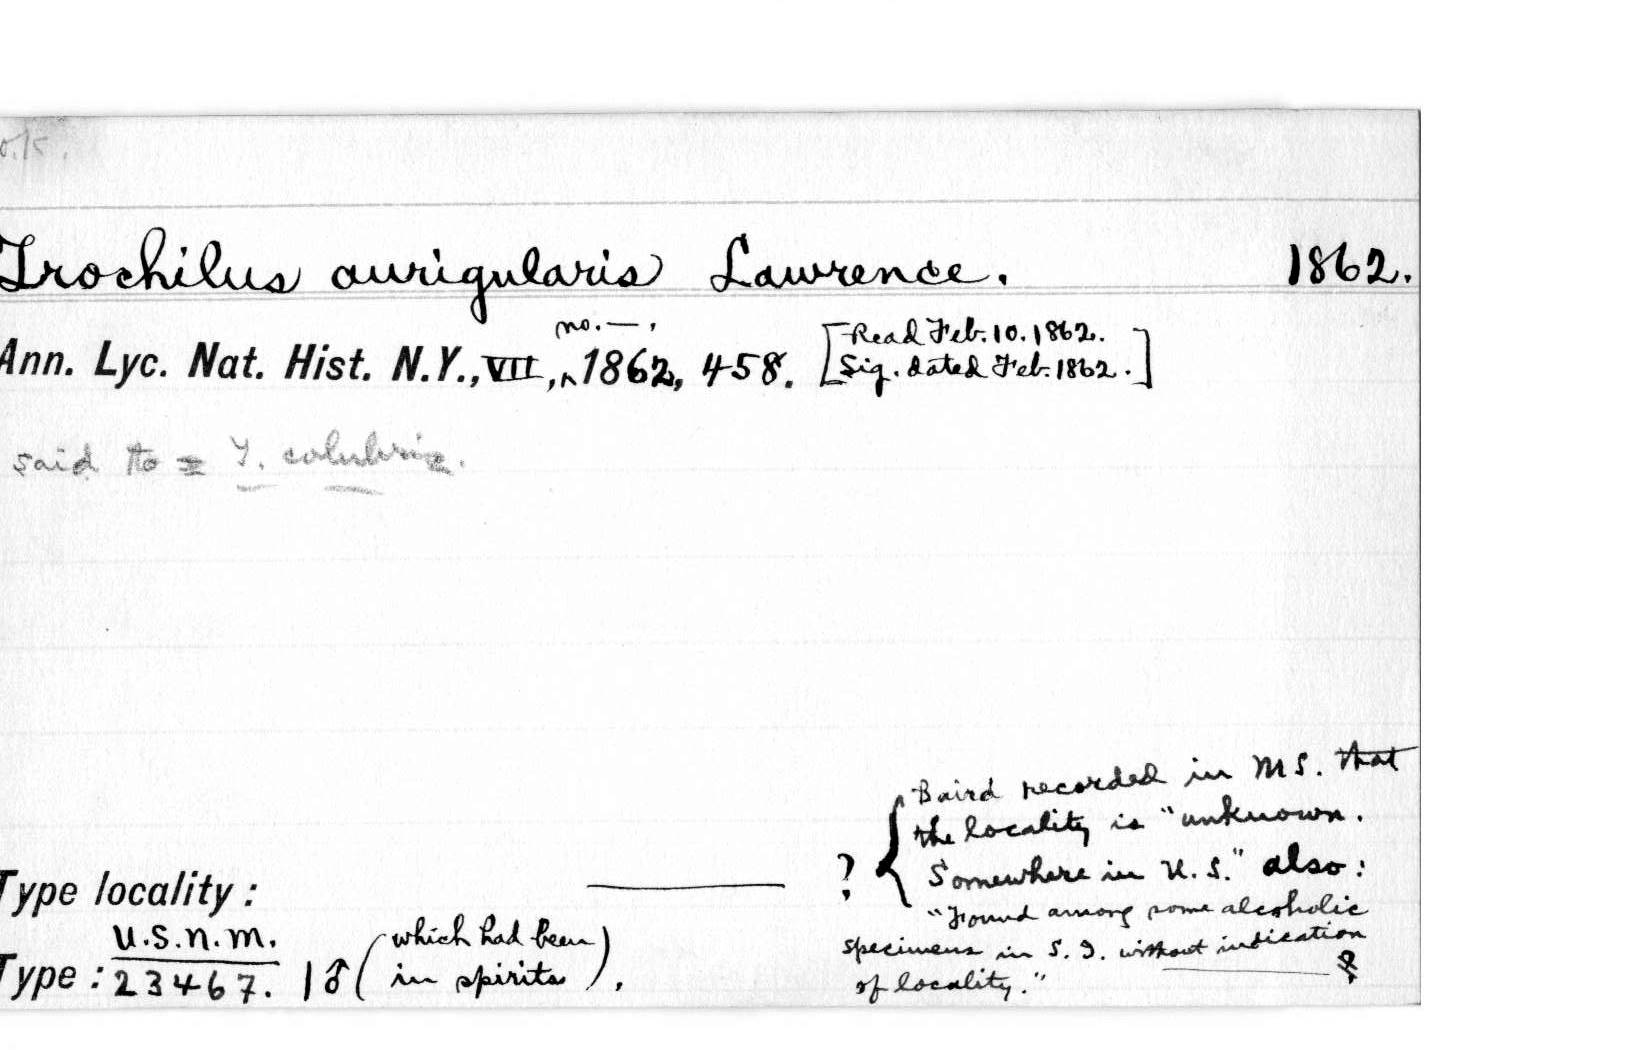 Trochilus aurigularis Lawrence. 1862.
no. — ,
Ann. Lyc. Nat. Hist. N.Y., VII, ^ 1862, 458. [Read Feb. 10. 1862. Sig. dated Feb. 1862.]
said to = T. colubris.
Baird recorded in MS. that
the locality is "unknown.
Somewhere in U.S." also:
Type locality: ——— ? {
"Found among some alcoholic
specimens in S. I. without indication
of locality."
U.S.N.M.
Type: 23467. 1♂ (which had been in spirits).